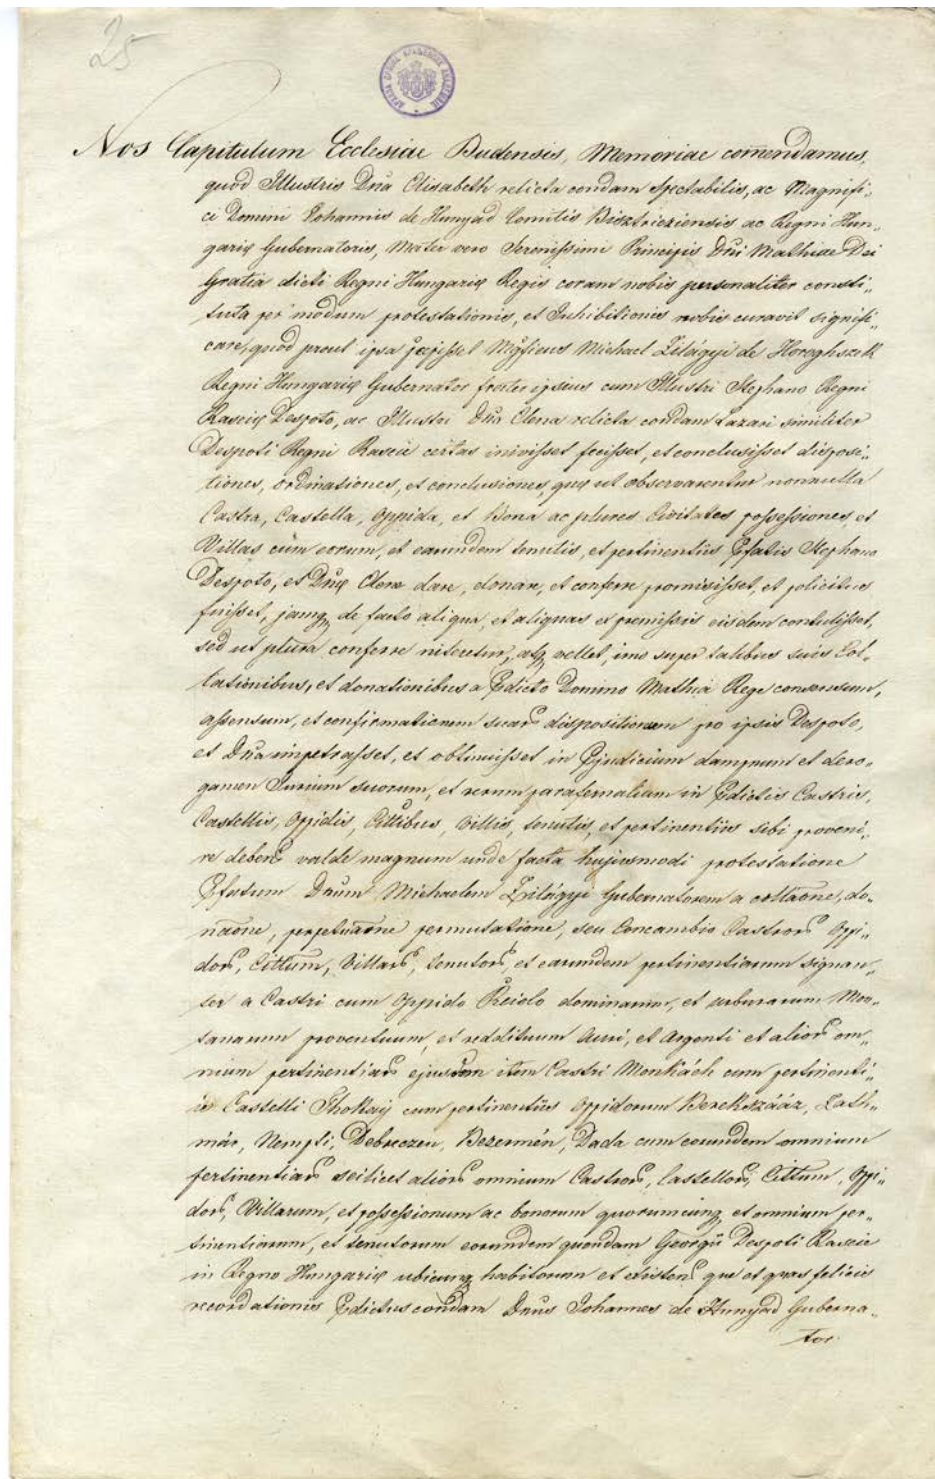 25
Nos Capitulum Ecclesiae Budensis, Memoriae comendamus,
quod Illustris Dña Elisabeth relicta condam Spectabilis, ac Magnifi„
ci Domini Johannis de Hunyad Comitis Bisztricziensis ac Regni Hun„
garię Gubernatoris, Mater vero Serenissimi Principis Dñi Mathiae Dei
Gratia dicti Regni Hungarię Regis coram nobis personaliter consti„
tuta per modum protestationis, et Inhibitionis nobis curavit signifi„
care, quod prout ipsa Mgficus Michael Zilágyi de Horoghszek
Regni Hungarię Gubernator frater ipsius cum Illustri Stephano Regni
Rascię Despoto, ac Illustri Dña Elena relicta condam Lazari similiter
Despoti Regni Rascie certas inivisset fecisset, et conclusisset disposi„
tiones, ordinationes, et conclusiones, que ut observarentur nonnulla
Castra, Castella, Oppida, et Bona ac plures Civitates possessiones, et
Villas cum eorum, et earundem tenutis, et pertinentiis Pfatis Stephano
Despoto, et Dnę Elene dare, donare, et conferre promisisset, et policitus
fuisset, jamq de facto aliqua, et aliquas ex premissis eisdem contulisset,
sed ut plura conferre niteretur, atq vellet, imo super talibus suis Col„
lationibus, et donationibus a Pdicto Domino Mathia Rege consensum,
assensum, et confirmationem suar dispositionem pro ipsis Despoto,
et Dña impetrasset, et obtinuisset in Pjudicium dampnum et dero„
gamen Jurium suorum, et rerum parafernalium in Pdictis Castris,
Castellis, Oppidis, Cittibus, Villis, tenutis, et pertinentiis sibi proveni„
re deben valde magnum unde facta hujusmodi protestatione
Pfatum Dnum Michaelem Zilágyi Gubernatorem a collãone, do„
nãone, perpetuãone permutatione, seu Concambio Castror Oppi„
dor, Cittum, Villar, tenutor, et earundem pertinentiarum signan„
ter a Castri cum Oppido dominarum, et urburarum Mon„
tanarum proventuum, et reddituum Auri, et Argenti et alior om„
nium pertinentiar ejusdem item Castri Monkách cum pertinenti„
is Castelli Thokaij cum pertinentiis Oppidorum Berekszááz, Zath„
már, Nempti, Debreczen, Bezermén, Dada cum eorundem omnium
pertinentiar scilicet alior omnium Castror, Castellor, Cittum, Oppi„
dor, Villarum, et possessionum ac bonorum quorumcunq et omnium per„
tinentiarum, et tenutorum eorundem quondam Georgii Despoti Rascie
in Regno Hungarię ubicunq habitorum et existen que et quas felicis
recordationis Pdictus condam Dnus Johannes de Hunyad Guberna„
tor